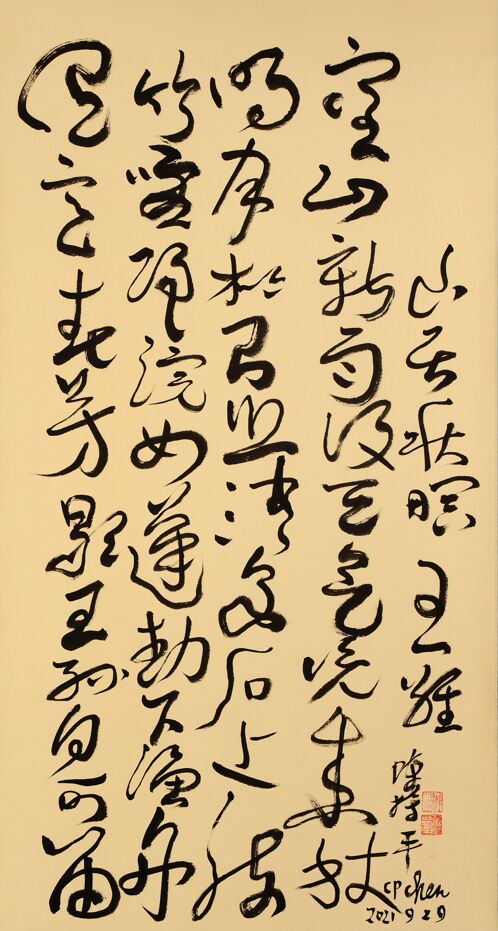 山居秋暝 王維
陳持平
CP chen
2021 9 29
空山新雨後天氣晚來秋
明月松間照清泉石上流
竹喧歸浣女蓮動下漁舟
隨意春芳歇王孫自可留